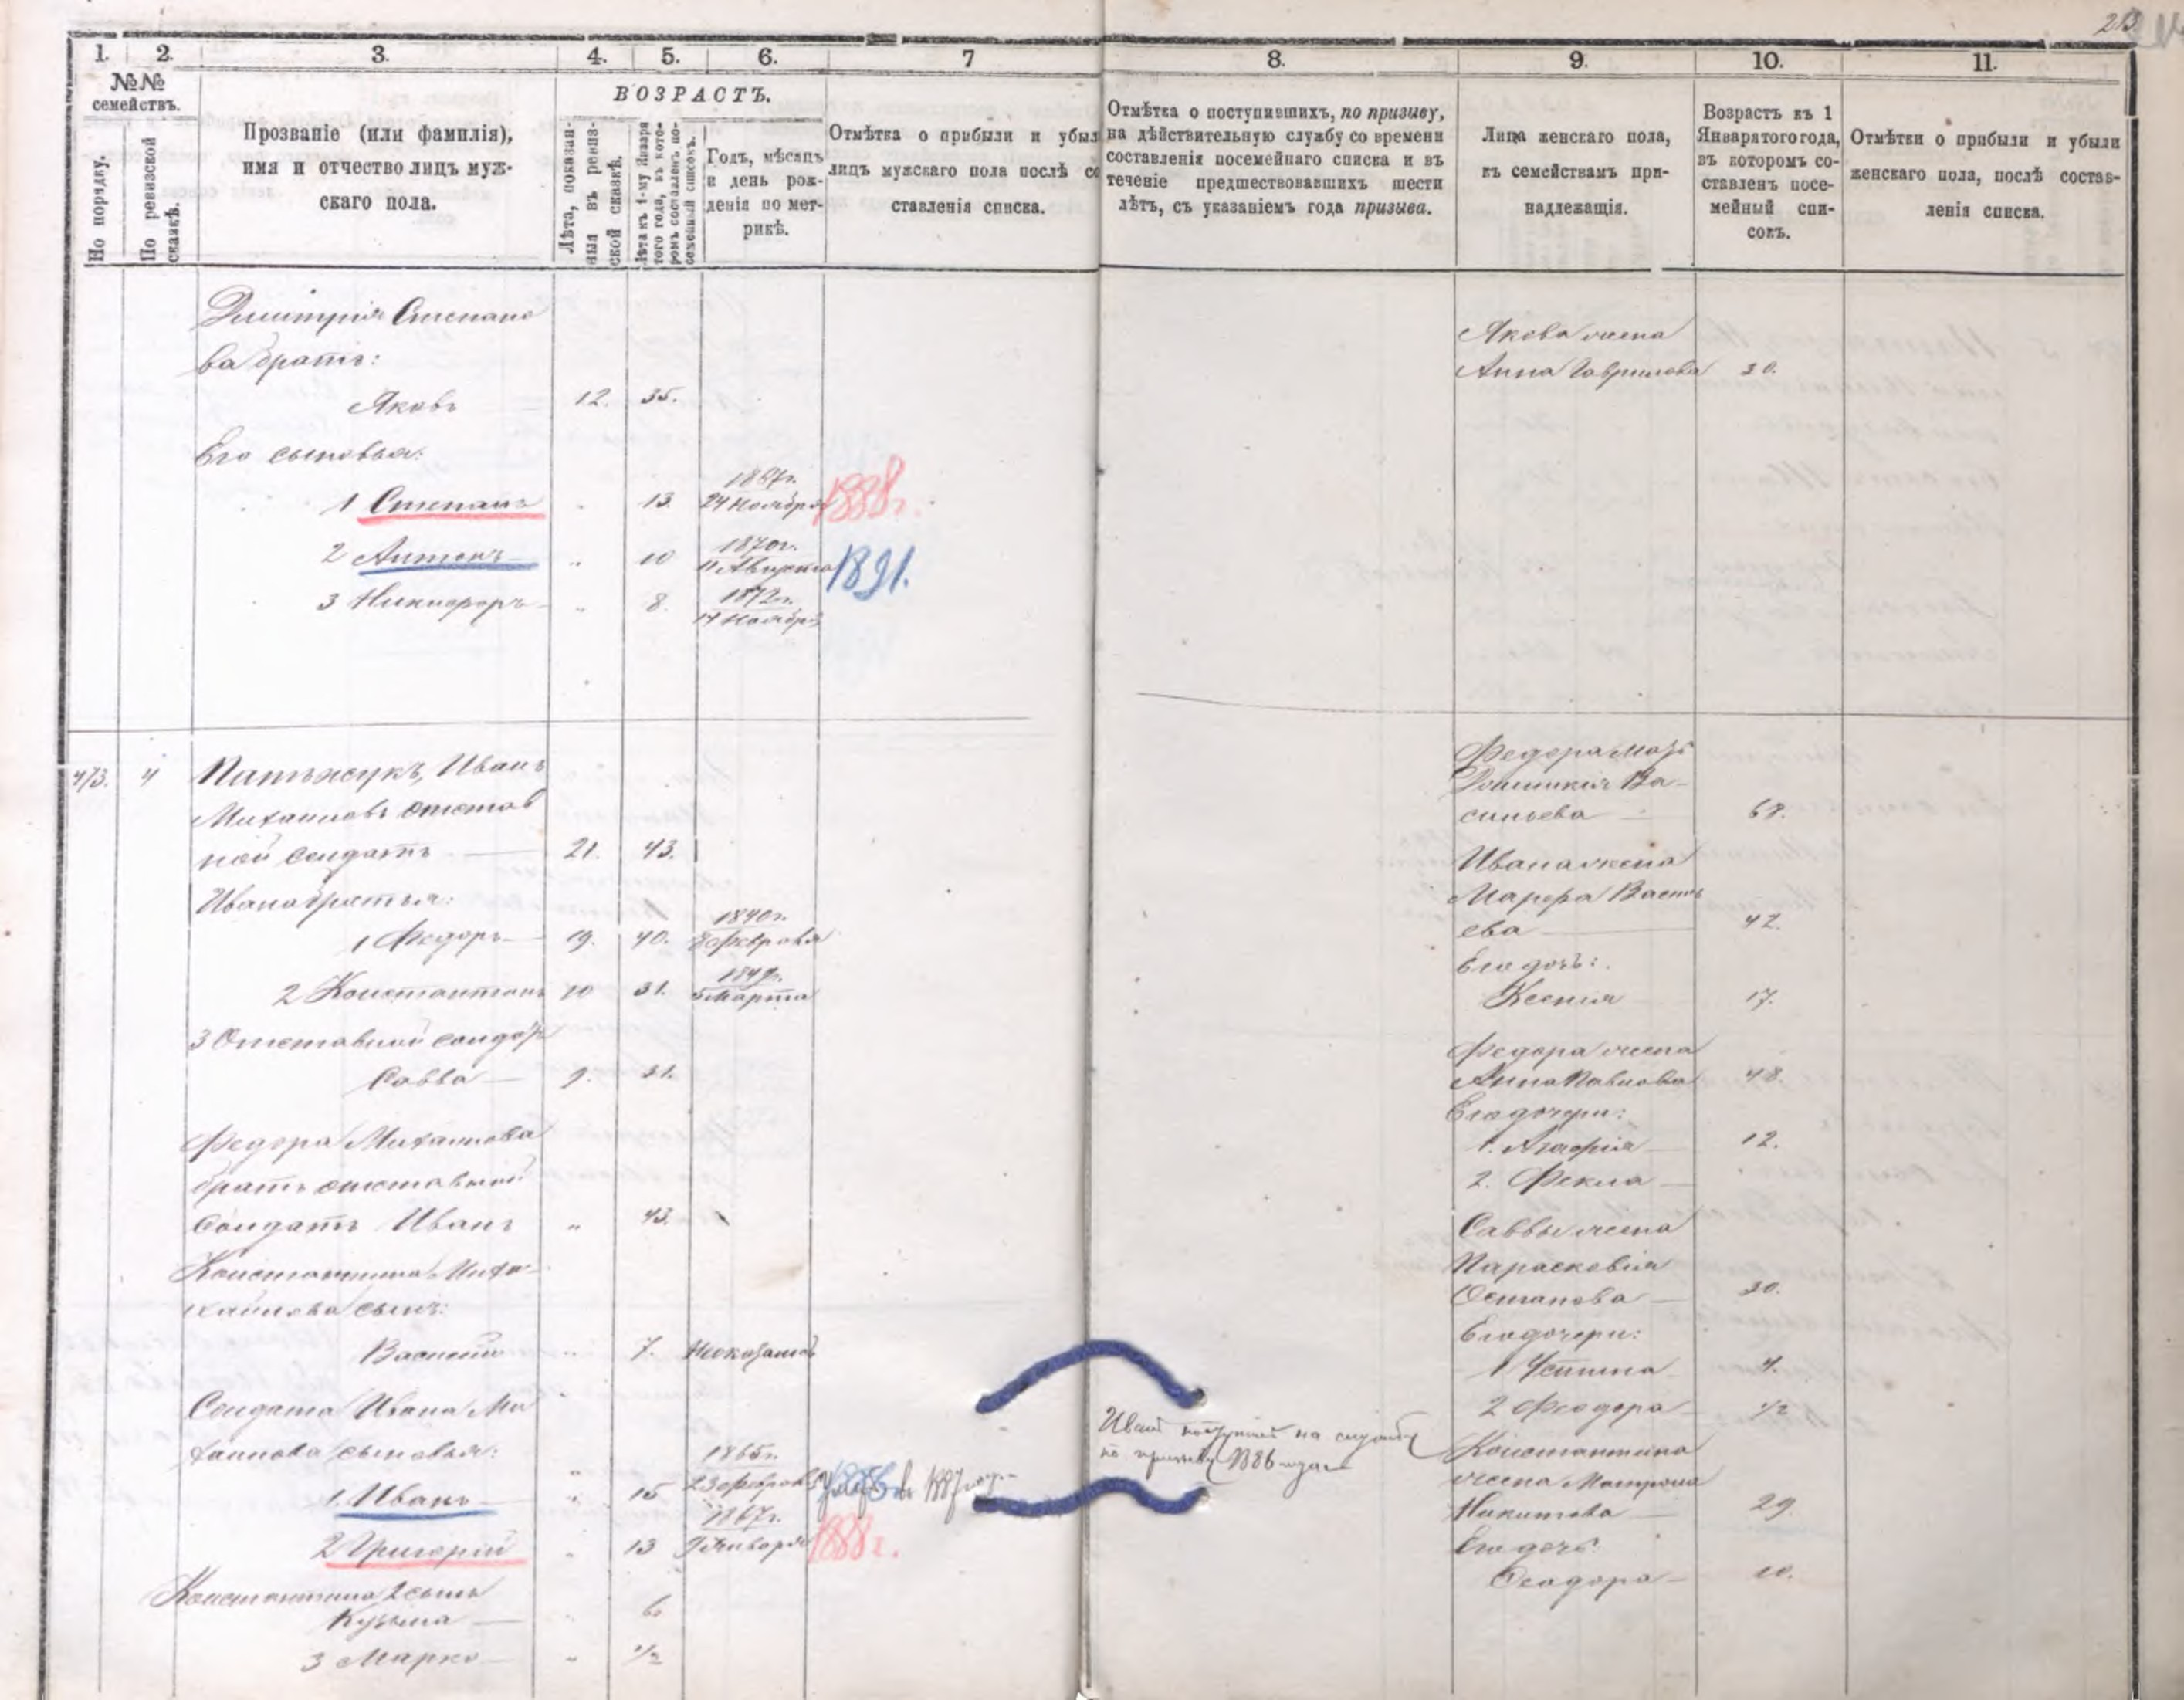 213
1.
2.
3.
4.
5.
6.
7
8.
9.
10.
11.
№№
семействъ.
По порядку.
По ревизской
сказкѣ.
Прозваніе (или фамилія),
имя и отчество лицъ муж-
скаго пола.
ВОЗРАСТЪ.
Лѣта, показан-
ныя въ ревиз-
ской сказкѣ.
Лѣта къ 1-му Января
того года, въ кото-
ромъ составленъ по-
семейный списокъ.
Годъ, мѣсяцъ
и день рож-
денія по мет-
рикѣ.
Отмѣтка о прибыли и убыл
лицъ мужскаго пола послѣ со
ставленія списка.
Отмѣтка о поступившихъ, по призыву,
на дѣйствительную службу со времени
составленія посемейнаго списка и въ
теченіе предшествовавшихъ шести
лѣтъ, съ указаніемъ года призыва.
Лица женскаго пола,
къ семействамъ при-
надлежащія.
Возрастъ къ 1
Января того года,
въ которомъ со-
ставленъ посе-
мейный спи-
сокъ.
Отмѣтки о прибыли и убыли
женскаго пола, послѣ состав-
ленія списка.
Дмитрія Степано
ва братъ:
Яковъ 12. 35.
Его сыновья:
1 Степанъ 13. 1867г. 24 Ноября 1888г.
2 Антонъ 10 1870г. 11 Августа 1891.
3 Никифоръ 8. 1872г. 14 Ноября
Якова жена
Анна Гаврилова 30.
473. 4 Иванъ
Михайловъ отстав
ной солдатъ 21. 43.
Ивана братья:
1 Федоръ 19. 40. 1840г. 8 Февраля
2 Константинъ 10 31. 1849г. 5 Марта
3 Отставной солдатъ
Савва 9. 31.
Федора Михайлова
братъ отставной
солдатъ Иванъ „ 43.
Константина Ми-
хайлова сынъ:
Василій „ 7. Непоказанъ
Солдата Ивана Ми
хайлова сыновья:
1. Иванъ „ 15 1865г. 23 Февраля 1886 въ 1887 году
2 Григорій „ 13 1867г. 9 Января 1888г.
Константина 2 сынъ
Кузьма „ 6
3 Марко „ 1/2
Иванъ поступилъ на службу
по призыву 1886 года
Федора мать
Ва-
сильева 68.
Ивана жена
Марфа Василь
ева 42.
Его дочь:
Ксенія 17.
Федора жена
Анна Павлова 48.
Его дочери:
1. Агафія 12.
2. Фекла
Саввы жена
Парасковія
Остапова 30.
Его дочери:
1 Устина 4.
2 Феодора 1/2
Константина
жена Матрона
Никитова 29.
Его дочь:
Феодора 10.